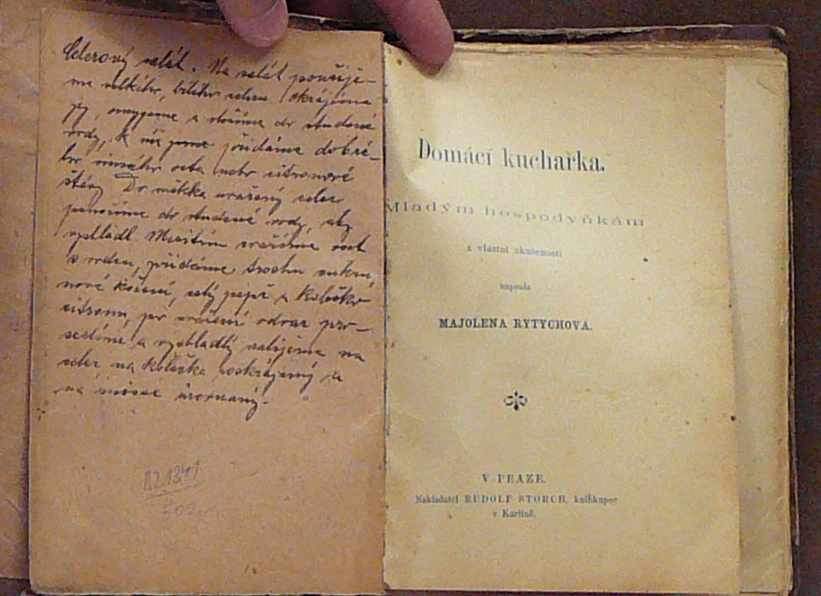 Celerový salát. Na salát použije-
me velkého, bílého celeru. Okrájíme
jej, omyjeme a vložíme do studené
vody, k níž jsme přidáme dobré-
ho vinného octa nebo citronové
šťávy. Do měkka uvařený celer
ponoříme do studené vody, aby
vychladl. Mezitím svaříme ocet
s vodou, přidáme trochu cukru,
nové koření, celý pepř a kolečko
citronu, po svaření odvar pro-
cedíme a vychladlý nalijeme na
celer na kolečka rozkrájený a
na míse urovnaný.
Domácí kuchařka.
Mladým hospodyňkám
z vlastní zkušenosti
napsala
MAJOLENA RYTYCHOVA.
V PRAZE.
Nakladatel RUDOLF STORCH, knihkupec
v Karlíně.